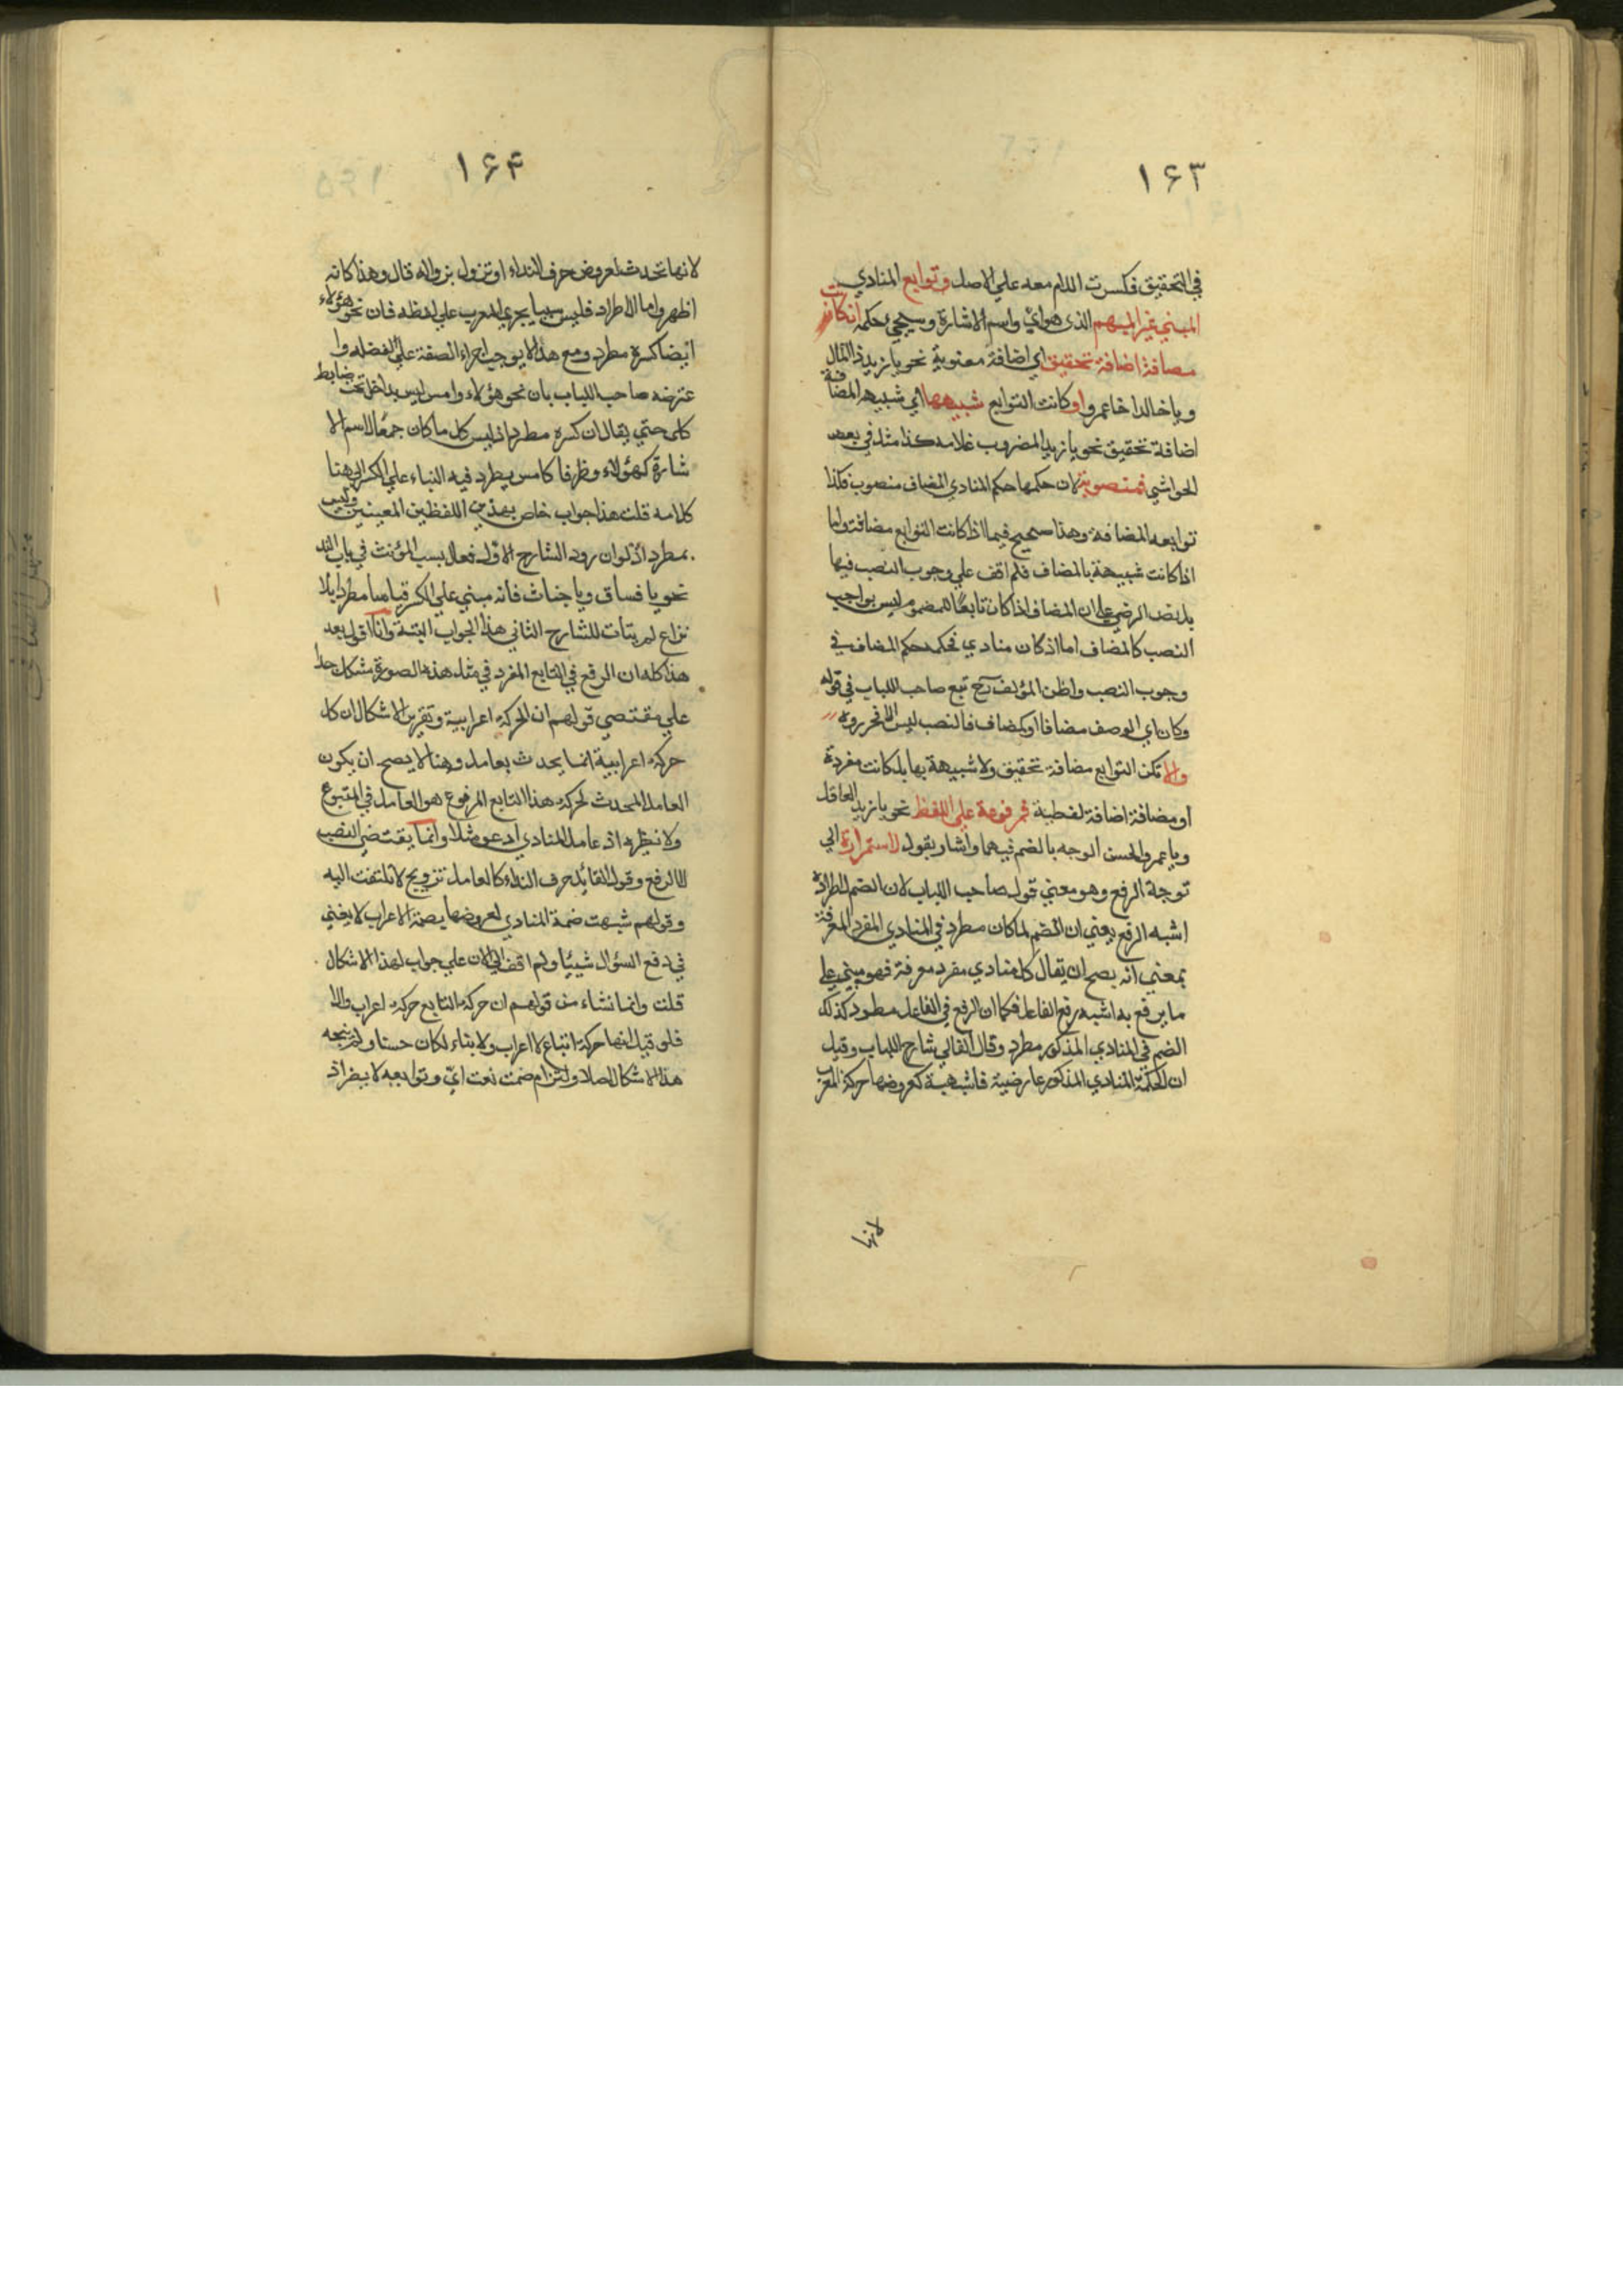 ۱۶۳
في التحقيق فكسرت اللام معه علي الاصل وتوابع المنادي
المبني غير المبهم الذي هو اي واسم الاشارة وسيجيء حكمه ان كانت
مضافة اضافة تحقيق اي اضافة معنوية نحو يا زيد ذا المال
ويا خالد اخا عمرو او كانت التوابع شبيهها اي شبيه المضافة
اضافة تحقيق نحو يا زيد المضروب غلامه كذا مثل في بعض
الحواشي فمنصوبة لان حكمها حكم المنادي المضاف منصوب فكذا
توابعه المضافة وهذا صحيح فيما اذا كانت التوابع مضافة واما
اذا كانت شبيهة بالمضاف فلم اقف علي وجوب النصب فيها
بل نص الرضي علي ان المضاف اذا كان تابعًا للمضموم ليس بواجب
النصب كالمضاف اما اذ كان منادي فحكمه حكم المضاف في
وجوب النصب واظن المؤلف تبع صاحب اللباب في قوله
وكان اي الوصف مضافا او كمضاف فالنصب ليس الا فحرروه
والا تكن التوابع مضافة تحقيق ولا شبيهة بها بل كانت مفردة
او مضافة اضافة لفظية فمرفوعة علي اللفظ نحو يا زيد العاقل
ويا عمرو الحسن الوجه بالضم فيهما واشار بقول لاستمراره الي
توجلة الرفع وهو معني قول صاحب اللباب لان الضم لاطراده
اشبه الرفع يعني ان الضم لما كان مطرد في المنادي المفرد المعرفة
بمعني انه يصح ان يقال كل منادي مفرد معرفة فهو مبني علي
ما يرفع به اشبه رفع الفاعل فكما ان الرفع في الفاعل مطرد كذلك
الضم في المنادي المذكور مطرد وقال الفالي شارح اللباب وقيل
ان الحكمة المنادي المذكور عارضية فاشبهت كعروضها حركة المعرب
لانها
۱۶۴
لانها تحدث لعروض حرف النداء او تزول بزواله قال وهذا كانه
اظهر واما الاطراد فليس سببا يجري المعرب علي لفظه فان نحو هؤلاء
ايضا كسره مطرد ومع هذا لا يوجب اجراء الصفة علي لفظه وا
عترضه صاحب اللباب بان نحو هؤلاء وامس ليس بداخل تحت ضابط
كلي حتي يقال ان كسره مطرد اذ ليس كل ما كان جمعًا لاسم الا
شارة كهؤلاء وظرفا كامس يطرد فيه البناء علي الكسر الي هنا
كلامه قلت هذا جواب خاص بهذين اللفظين المعينين وليس
بمطرد اذ لو ان رود الشارح الاول فعال بسبب المؤنث في باب النداء
نحو يا فساق ويا خبات فانه مبني علي الكسر قياسا مطردا بلا
نزاع لم يتأت للشارح الثاني هذا الجواب البتة وانا اقول بعد
هذا كله ان الرفع في التابع المفرد في مثل هذه الصورة مشكل جدا
علي مقتضي قولهم ان الحركة اعرابية وتقرير الاشكال ان كل
حركة اعرابية انما يحدث بعامل وهنا لا يصح ان يكون
العامل المحدث لحركة هذا التابع المرفوع هو العامل في المتبوع
ولا نظيره اذ عامل المنادي ادعو مثلا وانما يقتضي النصب
لا الرفع وقول القائل حرف النداء كالعامل ترويج لا تلتفت اليه
وقولهم شبهت ضمة المنادي لعروضها بضمة الاعراب لا يغني
في دفع السؤال شيئا ولم اقف الي الان علي جواب لهذا الاشكال
قلت وانما نشاء من قولهم ان حركة التابع حركة اعراب والا
فلو قيل انها حركة اتباع لا اعراب ولا بناء لكان حسنا ولم يتجه
هذا الاشكال اصلا والتزام ضمت نعت اي وتوابعه لا يضر اذ